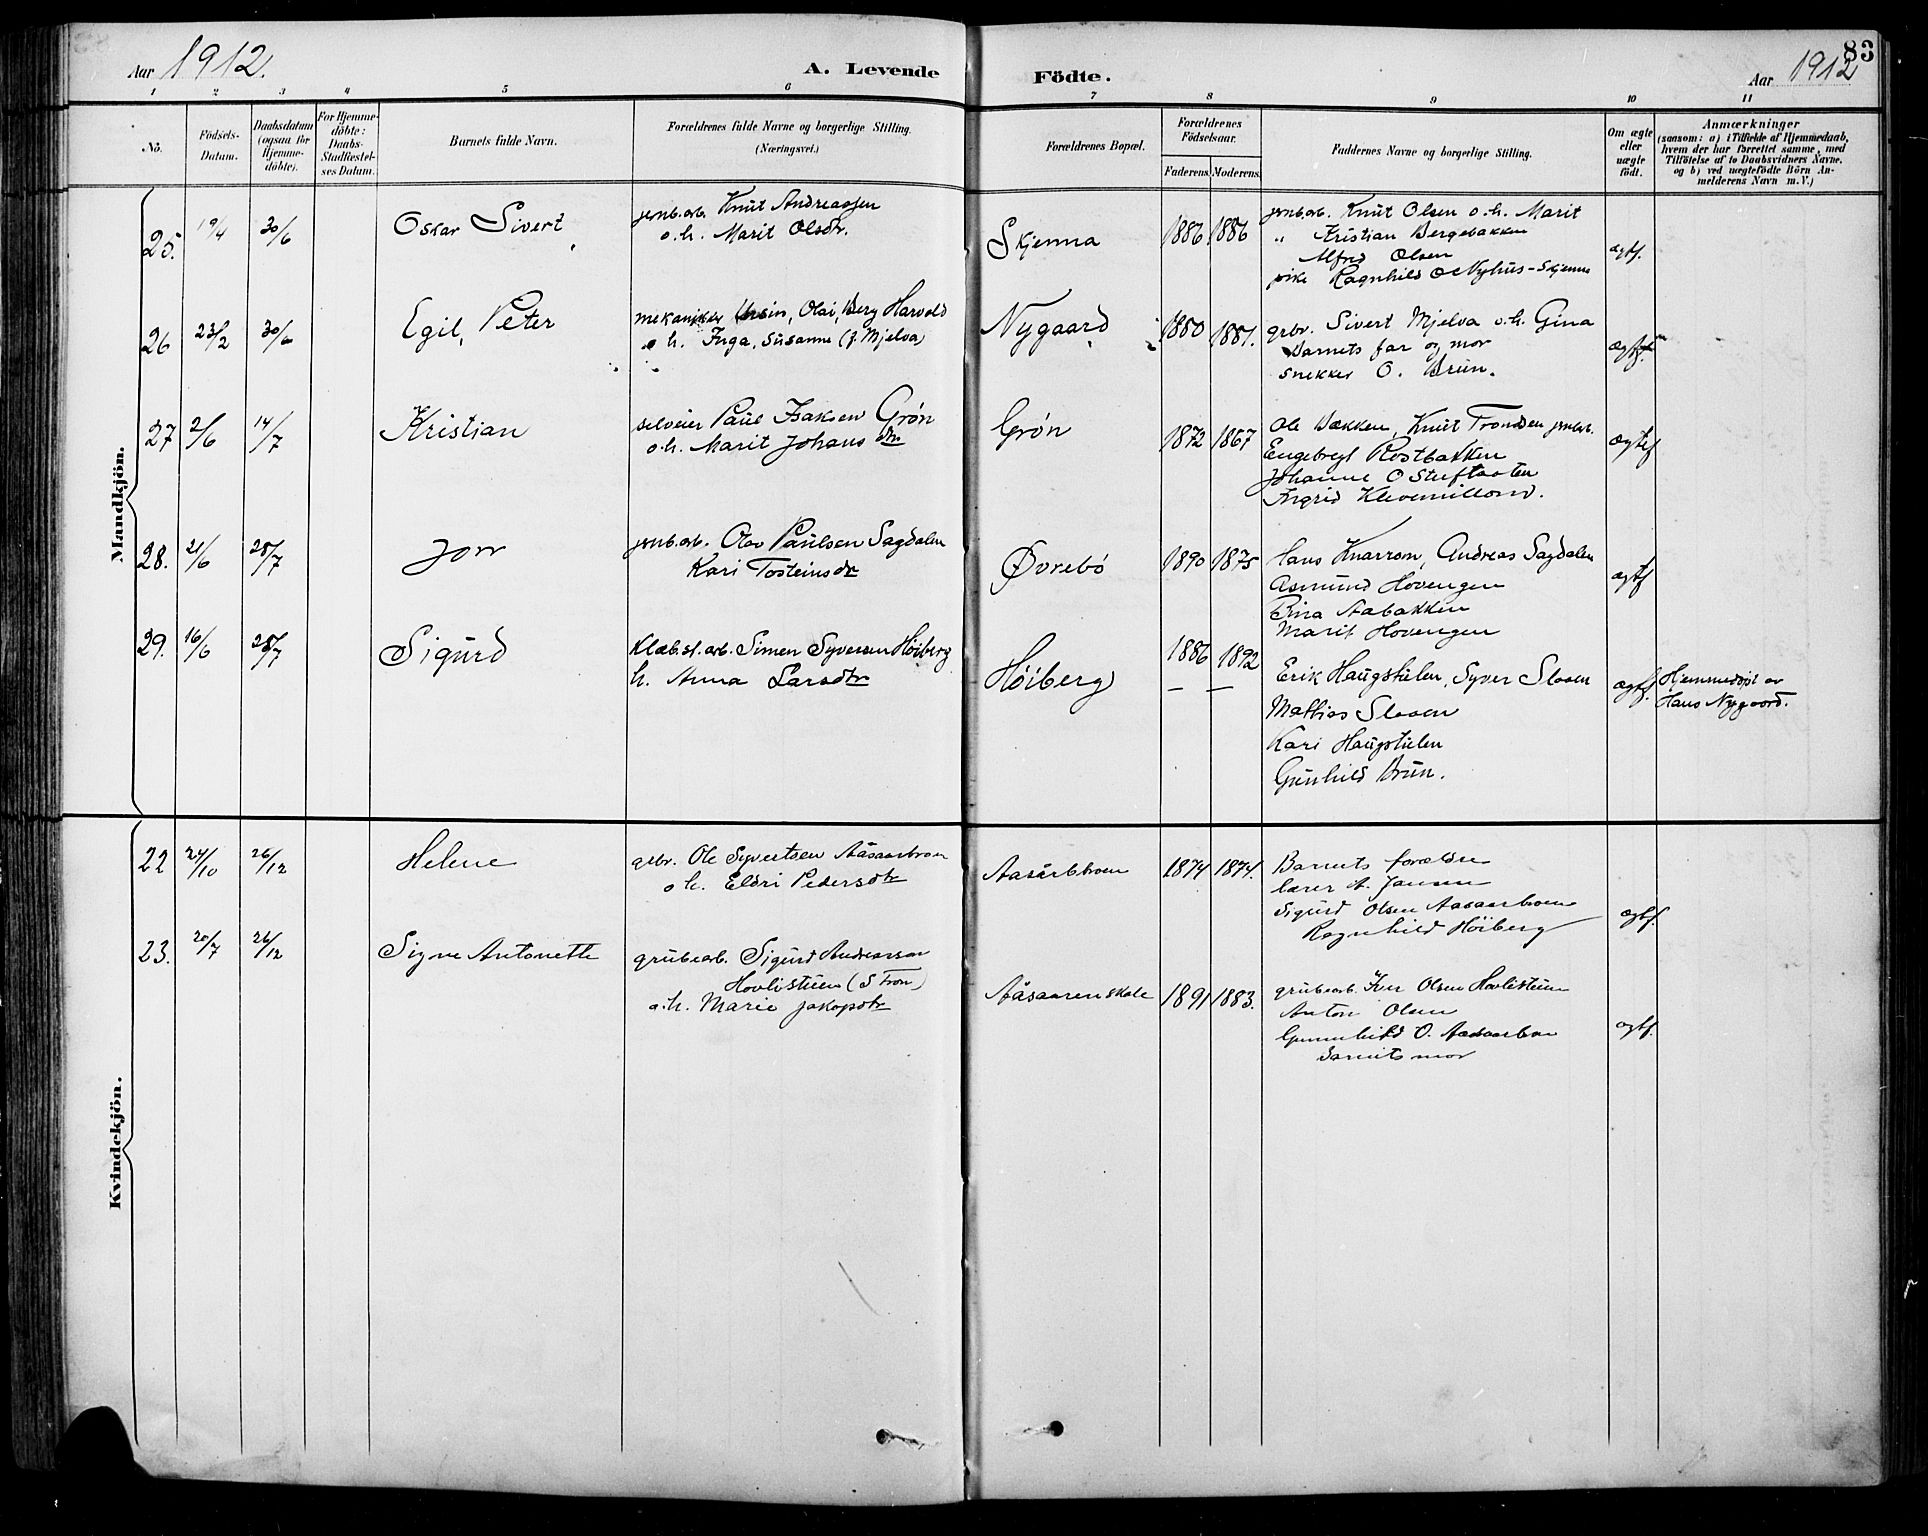 83
Aar 1912.
A. Levende Födte.
Aar 1912
1 2 3 4 5 6 7 8 9 10 11
No.
Födsels-
Datum.
Daabsdatum
(ogsaa for
Hjemme-
döbte).
For Hjemme-
döbte:
Daabs-
Stadfæstel-
ses Datum.
Barnets fulde Navn.
Forældrenes fulde Navne og borgerlige Stilling.
(Næringsvei.)
Forældrenes Bopæl.
Forældrenes
Födselsaar.
Faderens. Moderens.
Faddernes Navne og borgerlige Stilling.
Om ægte
eller
uægte
födt.
Anmærkninger
(saasom: a) i Tilfælde af Hjemmedaab,
hvem der har forrettet samme, med
Tilföielse af to Daabsvidners Navne,
og b) ved uægtefödte Börn An-
melderens Navn m. V.)
Mandkjön.
25. 19/4 30/6 Oskar Sivert
jernb.arb. Knut Andreassen
o.h. Marit Olsdtr.
Skjenna 1886 1886
jernb.arb. Knut Olsen o.h. Marit
„ Kristian Bergebakken
Alfred Olsen
pike Ragnhild O Nyhus - Skjenne
ægtf.
26 23/2 30/6 Egil, Peter
mekaniker Olai, Berg Harvold
o h. Inga, Susanne (f. Mjelva)
Nygaard 1880 1881.
grbr. Sivert Mjelva o.h. Gina
Barnets far og mor
snekker O. Brun.
ægtf.
27 2/6 14/7 Kristian
selveier Paul Isaksen Grøn
o.h. Marit Johansdtr
Grøn 1872 1867
Ole Bakken, Knut Trondsen jernbarb.
Engebregt Rostbakken
Johanne O Stuflaaten
Ingrid
ægtef
28. 21/6 28/7 Jon
jernb.arb. Olav Paulsen Sagdalen
Kari Tosteinsdtr
Øvrebø 1890 1875
Hans Knarron, Andreas Sagdalen
Asmund Hovengen
Aabakken
Marit Hovengen
ægtf
29. 16/6 28/7 Sigurd
Klæb.st.arb. Simen Syversen Höiberg
h. Anna Larsdtr
Höiberg 1886 1892
Erik Haugstulen, Syver Slaaen
Mathias Slaaen
Kari Haugstulen
Gunhild Brun.
ægtf.
Hjemmedøpt av
Hans Nygaard.
Kvindekjön.
22 24/10 26/12 Helene
grbr. Ole Syvertsen Aasaarbroen
o h. Eldri Pedersdtr
Aasarbroen 1874 1874.
Barnets forældre
lærer A. Jansen
Sigurd Olsen Aasaarbroen
Ragnhild Höiberg
ægtf.
23. 20/7 26/12 Signe Antonette
grubearb. Sigurd Andreassen
Hovlistuen (S Fron)
o.h. Marie Jakopdtr
Aasaaren skole 1891 1883.
grubearb. Iver Olsen Hovlistuen
Anton Olsen
Gunnhild O. Aasaarbroen
Barnets mor
ægtf.